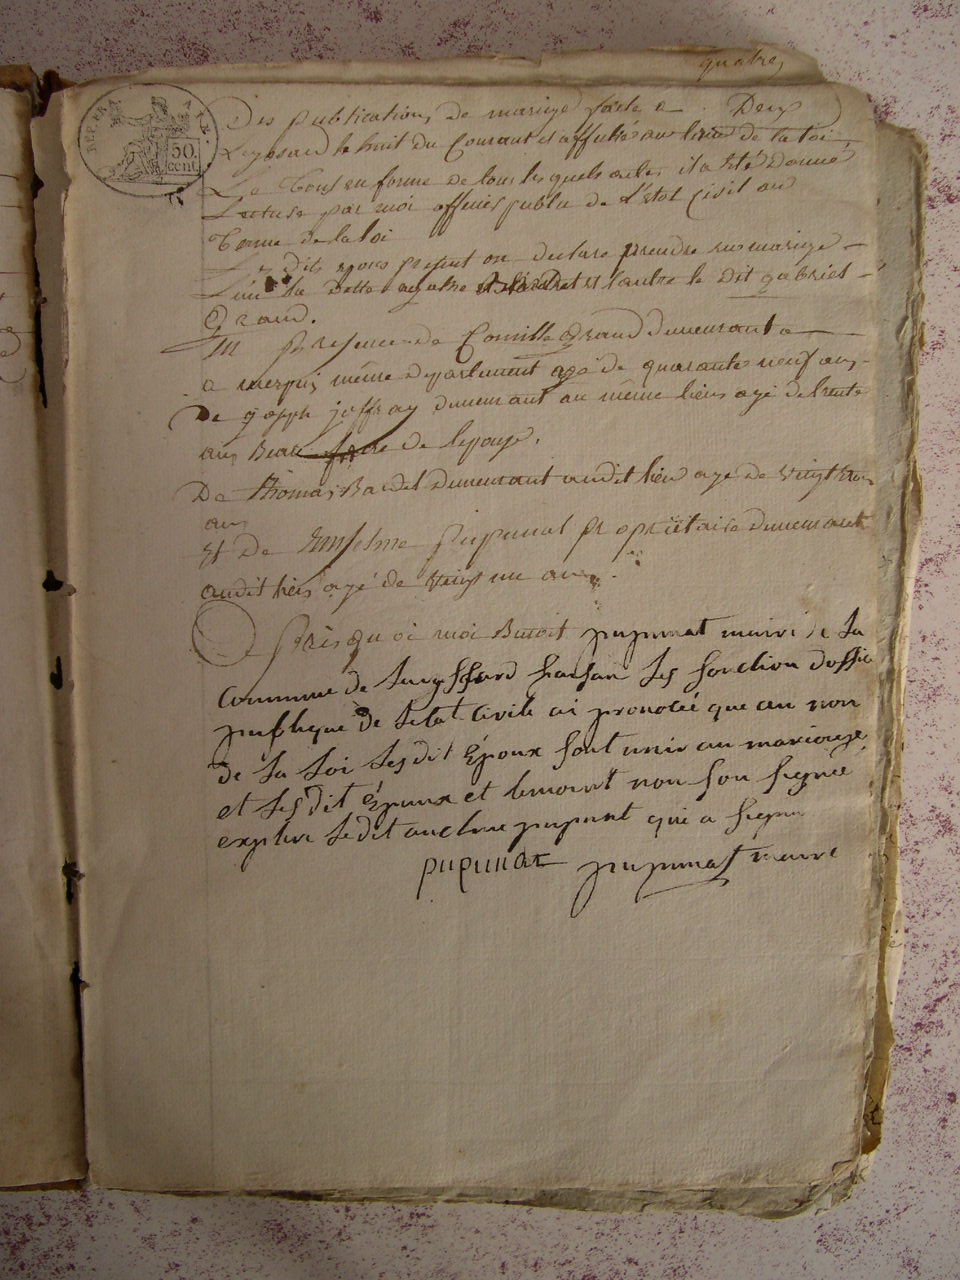 quatre,
REP. FRA
50
cent
Des publication, de mariage faite a Deux
Leyssard le huit du Courant et affiché au lieu de la loi
Le tout en forme de tous les quels actes il a été Donné
Lecture par moi officié public de l'état Civil au
terme de la loi
Les dits epoux present on declare prendre en mariage
L'un la ditte agathe et l'autre le dit gabriel
grand.
En presence de Camille grand demeurant a
même departement agé de quarante neuf ans,
De joseph joffray demeurant au même lieu agé de trente
ans Beau frere de lepouse.
De thomas Bardet demeurant audit lieu agé de vingt
ans
Et De Enselme pupunat propriétaire demeurant
audit lieu agé de vingt un ans.
Apres quoi moi Benoit pupunat maire de la
commune de Leyssard faisan les fonction doffice
publique de letat Civile ai prononcé que au non
de la loi les dit Époux sont unir au mariage,
et les dit Époux et temoint non son signée
ledit anclme pupunat qui a signé
pupunat pupunat maire